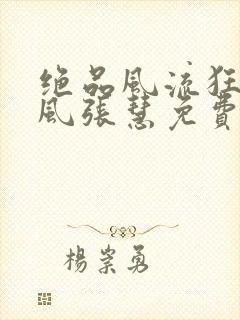 绝品风流狂
风张慧免费
杨崇勇